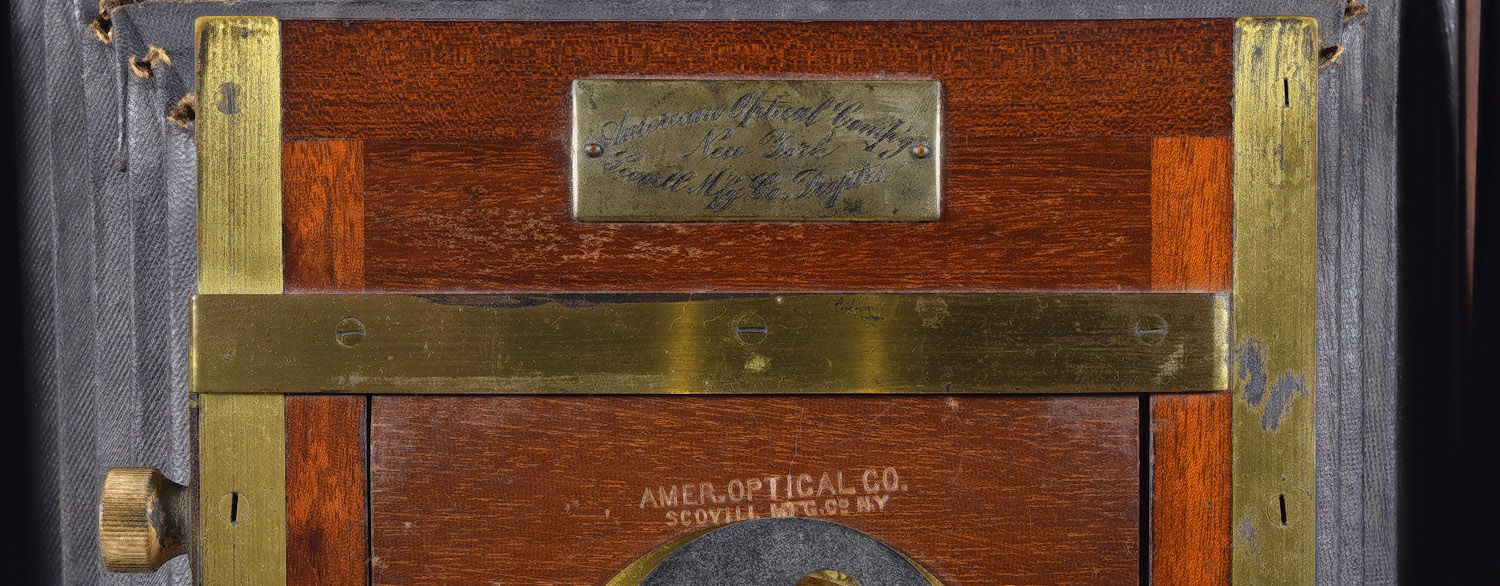 American Optical Comp'y
New York
Scovill M'f'g Co. Prop'trs
AMER. OPTICAL CO.
SCOVILL MFG. Co NY